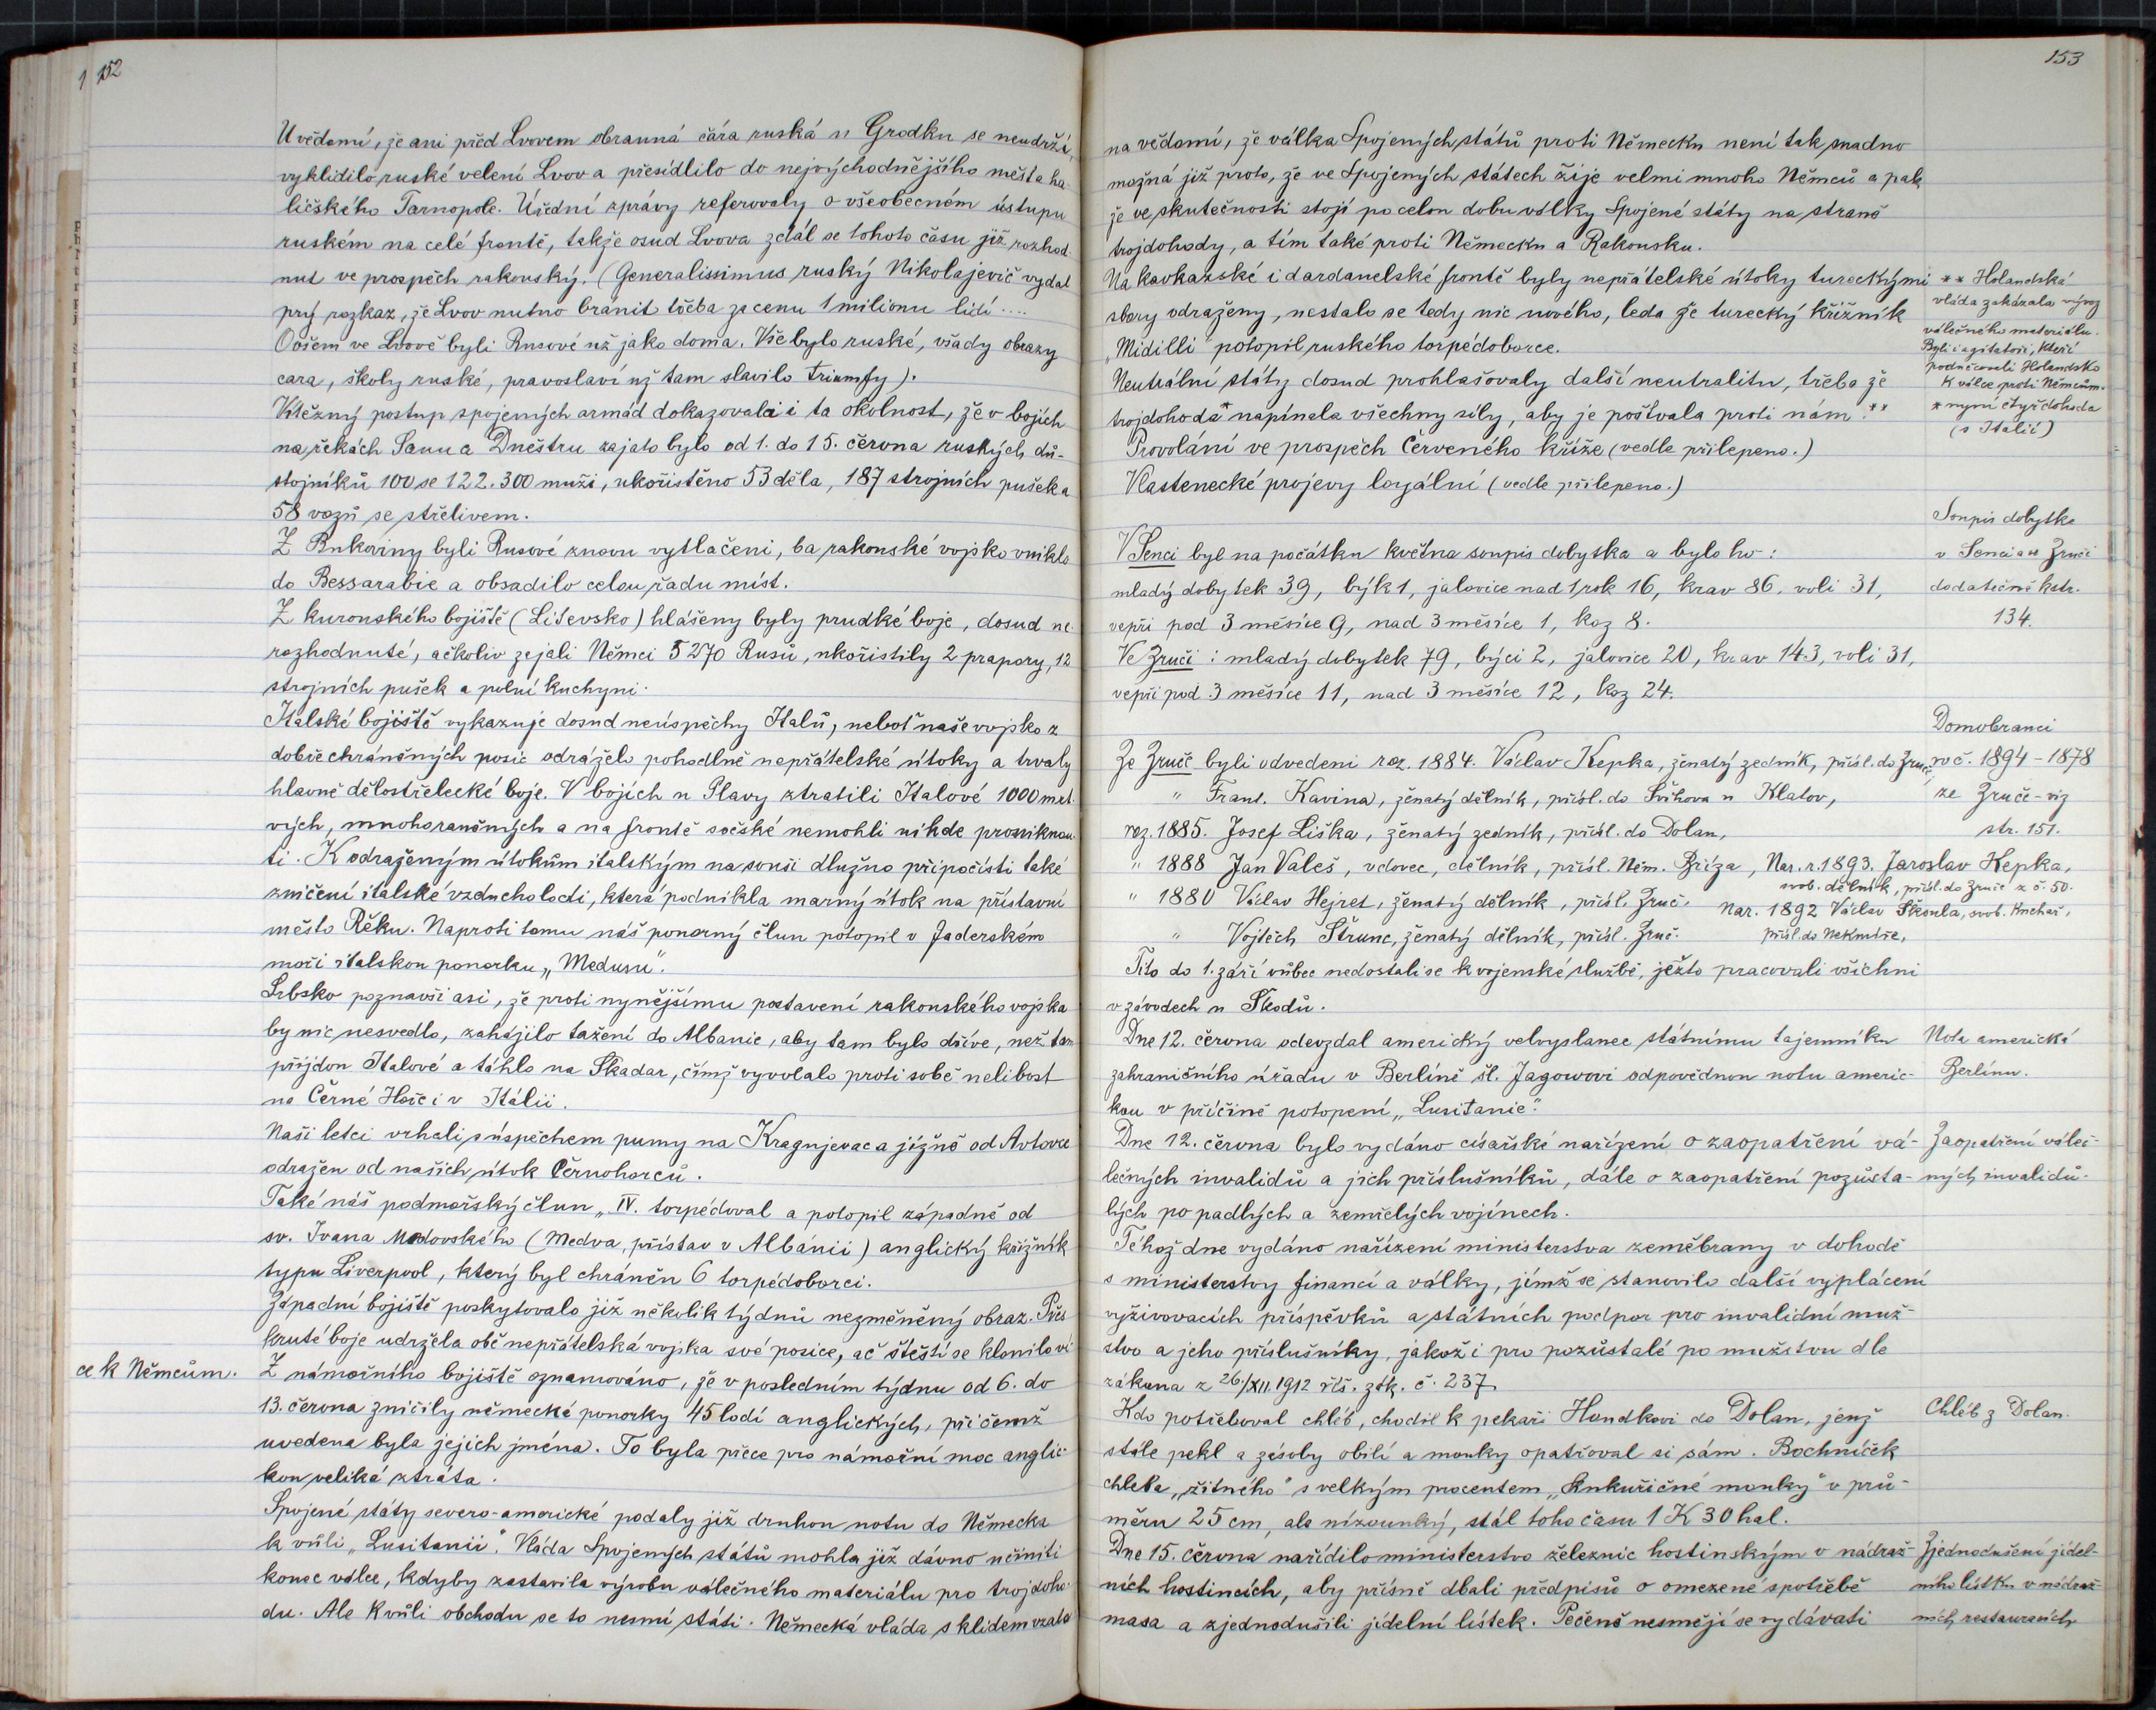 152
U vědomí, že ani před Lvovem obranná čára ruská u Grodku se neudrží,
vyklidilo ruské velení Lvov a přesídlilo do nejvýchodnějšího města ha-
ličského Tarnopole. Úřední zprávy referovaly o všeobecném ústupu
ruském na celé frontě, takže osud Lvova zdál se tohoto času již rozhod
nut ve prospěch rakouský. (Generalissimus ruský Nikolajevič vydal
prý rozkaz, že Lvov nutno bránit třeba za cenu 1 milionu lidí ....
Ovšem ve Lvově byli Rusové už jako doma. Vše bylo ruské, všady obrazy
cara, školy ruské, pravoslaví už tam slavilo triumfy).
Vítězný postup spojených armád dokazovala i ta okolnost, že v bojích
na řekách Sanu a Dněstru zajato bylo od 1. do 15. června ruských dů-
stojníků 100 se 122.300 muži, ukořistěno 53 děla, 187 strojních pušek a
58 vozů se střelivem.
Z Bukoviny byli Rusové znovu vytlačeni, ba rakouské vojsko vniklo
do Bessarabie a obsadilo celou řadu míst.
Z kuronského bojiště (Litevsko) hlášeny byly prudké boje, dosud ne-
rozhodnuté, ačkoliv zajali Němci 5270 Rusů, ukořistily 2 prapory, 12
strojních pušek a polní kuchyni.
Italské bojiště vykazuje dosud neúspěchy Italů, neboť naše vojsko z
dobře chráněných posic odráželo pohodlně nepřátelské útoky a trvaly
hlavně dělostřelecké boje. V bojích u Plavy ztratili Italové 1000 mrt-
vých, mnoho raněných a na frontě sočské nemohli nikde proniknou-
ti. K odraženým útokům italským na souši dlužno připočísti také
zničení italské vzducholodi, která podnikla marný útok na přístavní
město Řěku. Naproti tomu náš ponorný člun potopil v Jaderském
moři italskou ponorku „Medusu".
Srbsko poznavši asi, že proti nynějšímu postavení rakouského vojska
by nic nesvedlo, zahájilo tažení do Albanie, aby tam bylo dříve, než tam
přijdou Italové a táhlo na Skadar, čímž vyvolalo proti sobě nelibost
na Černé Hoře i v Itálii.
Naši letci vrhali s úspěchem pumy na Kragujevac a jižně od Avtovce
odražen od našich útok Černohorců.
Také náš podmořský člun „IV. torpédoval a potopil západně od
sv. Ivana Medovského (Medva, přístav v Albánii) anglický křižník
typu Liverpool, který byl chráněn 6 torpédoborci.
Západní bojiště poskytovalo již několik týdnů nezměněný obraz. Přes
kruté boje udržela obě nepřátelská vojska své posice, ač štěstí se klonilo ví
ce k Němcům.
Z námořního bojiště oznamováno, že v posledním týdnu od 6. do
13. června zničily německé ponorky 45 lodí anglických, při čemž
uvedena byla jejich jména. To byla přece pro námořní moc anglic-
kou veliká ztráta.
Spojené státy severo-americké podaly již druhou notu do Německa
k vůli „Lusitanii". Vláda Spojených států mohla již dávno učiniti
konec válce, kdyby zastavila výrobu válečného materiálu pro trojdoho-
du. Ale k vůli obchodu se to nesmí státi. Německá vláda s klidem vzala
153
na vědomí, že válka Spojených států proti Německu není tak snadno
možná již proto, že ve Spojených státech žije velmi mnoho Němců a pak
že ve skutečnosti stojí po celou dobu války Spojené státy na straně
trojdohody, a tím také proti Německu a Rakousku.
Na kavkazské i dardanelské frontě byly nepřátelské útoky tureckými
sbory odraženy, nestalo se tedy nic nového, leda že turecký křižník
„Midilli" potopil ruského torpédoborce.
Neutrální státy dosud prohlašovaly další neutralitu, třeba že
trojdohoda* napínala všechny síly, aby je poštvala proti nám. **
** Holandská
vláda zakázala vývoz
válečného materiálu.
Byli i agitatoři, kteří
podněcovali Holandsko
k válce proti Němcům.
* nyní čtyřdohoda
(s Itálií)
Provolání ve prospěch Červeného kříže (vedle přilepeno.)
Vlastenecké projevy loyální (vedle přilepeno.)
V Senci byl na počátku května soupis dobytka a bylo ho:
mladý dobytek 39, býk 1, jalovice nad 1 rok 16, krav 86, voli 31,
vepři pod 3 měsíce 9, nad 3 měsíce 1, koz 8.
Ve Zruči: mladý dobytek 79, býci 2, jalovice 20, krav 143, voli 31,
vepři pod 3 měsíce 11, nad 3 měsíce 12, koz 24.
Soupis dobytka
v Senci a ve Zruči
dodatečně k str.
134.
Ze Zruče byli odvedeni roz. 1884. Václav Kepka, ženatý zedník, přísl. do Zruče,
" Frant. Kavina, ženatý dělník, přísl. do Švihova u Klatov,
roz. 1885. Josef Liška, ženatý zedník, přísl. do Dolan,
" 1888 Jan Valeš, vdovec, dělník, přísl. Něm. Bříza,
" 1880 Václav Hejret, ženatý dělník, přísl. Zruč.
" Vojtěch Štrunc, ženatý dělník, přísl. Zruč.
Domobranci
roč. 1894-1878
ze Zruče - viz
str. 151.
Nar. r. 1893. Jaroslav Kepka,
svob. dělník, přísl. do Zruče z č. 50.
Nar. 1892 Václav Škoula, svob. kuchař,
přísl. do Nekmíře,
Tito do 1. září vůbec nedostali se k vojenské službě, ježto pracovali všichni
v závodech u Škodů.
Dne 12. června odevzdal americký velvyslanec státnímu tajemníku
zahraničního úřadu v Berlíně šl. Jagowovi odpovědnou notu americ-
kou v příčině potopení „Lusitanie".
Nota americká
Berlínu.
Dne 12. června bylo vydáno císařské nařízení o zaopatření vá-
lečných invalidů a jich příslušníků, dále o zaopatření pozůsta-
lých po padlých a zemřelých vojínech.
Zaopatření váleč-
ných invalidů.
Téhož dne vydáno nařízení ministerstva zeměbrany v dohodě
s ministerstvy financí a války, jímž se stanovilo další vyplácení
vyživovacích příspěvků a státních podpor pro invalidní muž-
stvo a jeho příslušníky, jakož i pro pozůstalé po mužstvu dle
zákona z 26./XII. 1912 říš. zák. č. 237.
Kdo potřeboval chléb, chodil k pekaři Hondkovi do Dolan, jenž
stále pekl a zásoby obilí a mouky opatřoval si sám. Bochníček
chleba „žitného" s velkým procentem „kukuřičné mouky" v prů-
měru 25 cm, ale nízounký, stál toho času 1 K 30 hal.
Chléb z Dolan.
Dne 15. června nařídilo ministerstvo železnic hostinským v nádraž-
ních hostincích, aby přísně dbali předpisů o omezené spotřebě
masa a zjednodušili jídelní lístek. Pečeně nesmějí se vydávati
Zjednodušení jídel-
ního lístku v nádraž-
ních restauracích